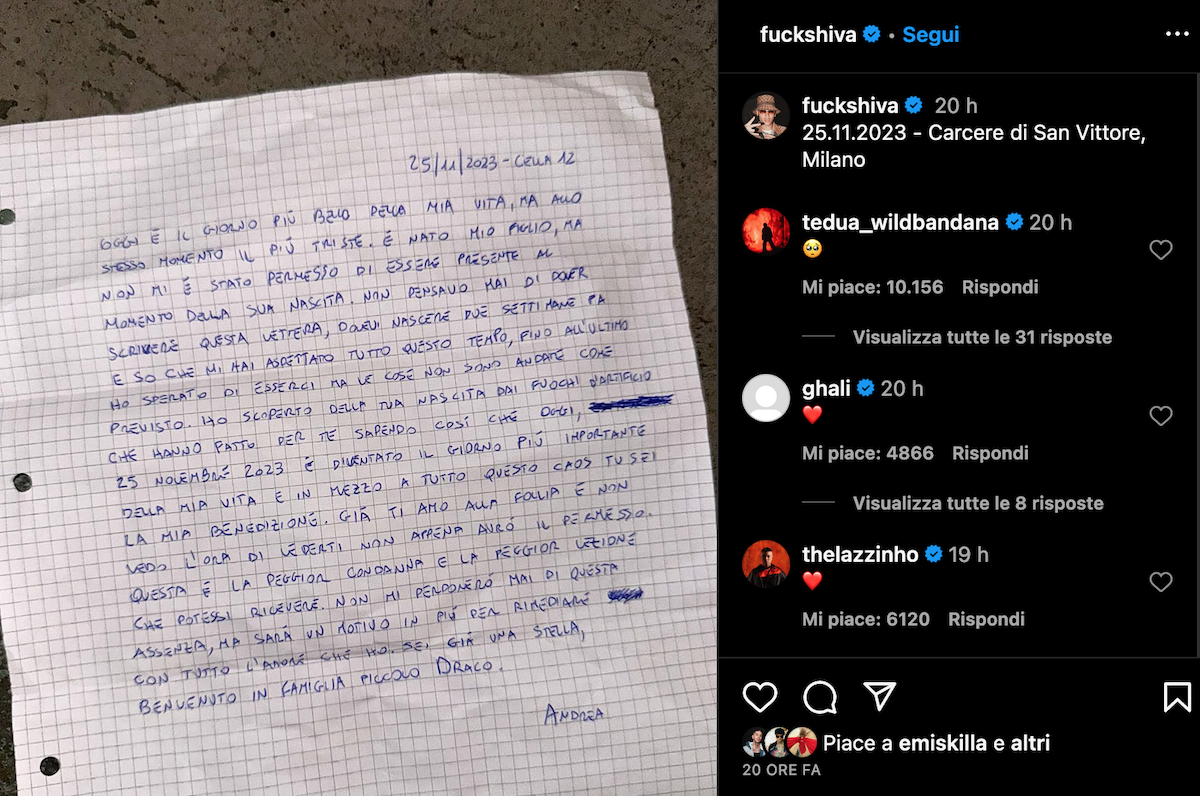 25/11/2023 - CELLA 12
OGGI È IL GIORNO PIÚ BELLO DELLA MIA VITA, MA ALLO
STESSO MOMENTO IL PIÚ TRISTE. É NATO MIO FIGLIO, MA
NON MI É STATO PERMESSO DI ESSERE PRESENTE AL
MOMENTO DELLA SUA NASCITA. NON PENSAVO MAI DI DOVER
SCRIVERE QUESTA LETTERA, DOVEVI NASCERE DUE SETTIMANE FA
E SO CHE MI HAI ASPETTATO TUTTO QUESTO TEMPO, FINO ALL'ULTIMO
HO SPERATO DI ESSERCI MA LE COSE NON SONO ANDATE COME
PREVISTO. HO SCOPERTO DELLA TUA NASCITA DAI FUOCHI D'ARTIFICIO
CHE HANNO FATTO PER TE SAPENDO COSÍ CHE OGGI,
25 NOVEMBRE 2023 É DIVENTATO IL GIORNO PIÚ IMPORTANTE
DELLA MIA VITA E IN MEZZO A TUTTO QUESTO CAOS TU SEI
LA MIA BENEDIZIONE. GIÁ TI AMO ALLA FOLLIA E NON
VEDO L'ORA DI VEDERTI NON APPENA AVRÓ IL PERMESSO.
QUESTA É LA PEGGIOR CONDANNA E LA PEGGIOR LEZIONE
CHE POTESSI RICEVERE. NON MI PERDONERÓ MAI DI QUESTA
ASSENZA, MA SARÁ UN MOTIVO IN PIÚ PER RIMEDIARE
CON TUTTO L'AMORE CHE HO. SEI GIÁ UNA STELLA,
BENVENUTO IN FAMIGLIA PICCOLO DRACO.
ANDREA
fuckshiva • Segui
fuckshiva 20 h
25.11.2023 - Carcere di San Vittore,
Milano
tedua_wildbandana 20 h
🥺
Mi piace: 10.156 Rispondi
Visualizza tutte le 31 risposte
ghali 20 h
❤️
Mi piace: 4866 Rispondi
Visualizza tutte le 8 risposte
thelazzinho 19 h
❤️
Mi piace: 6120 Rispondi
Piace a emiskilla e altri
20 ORE FA